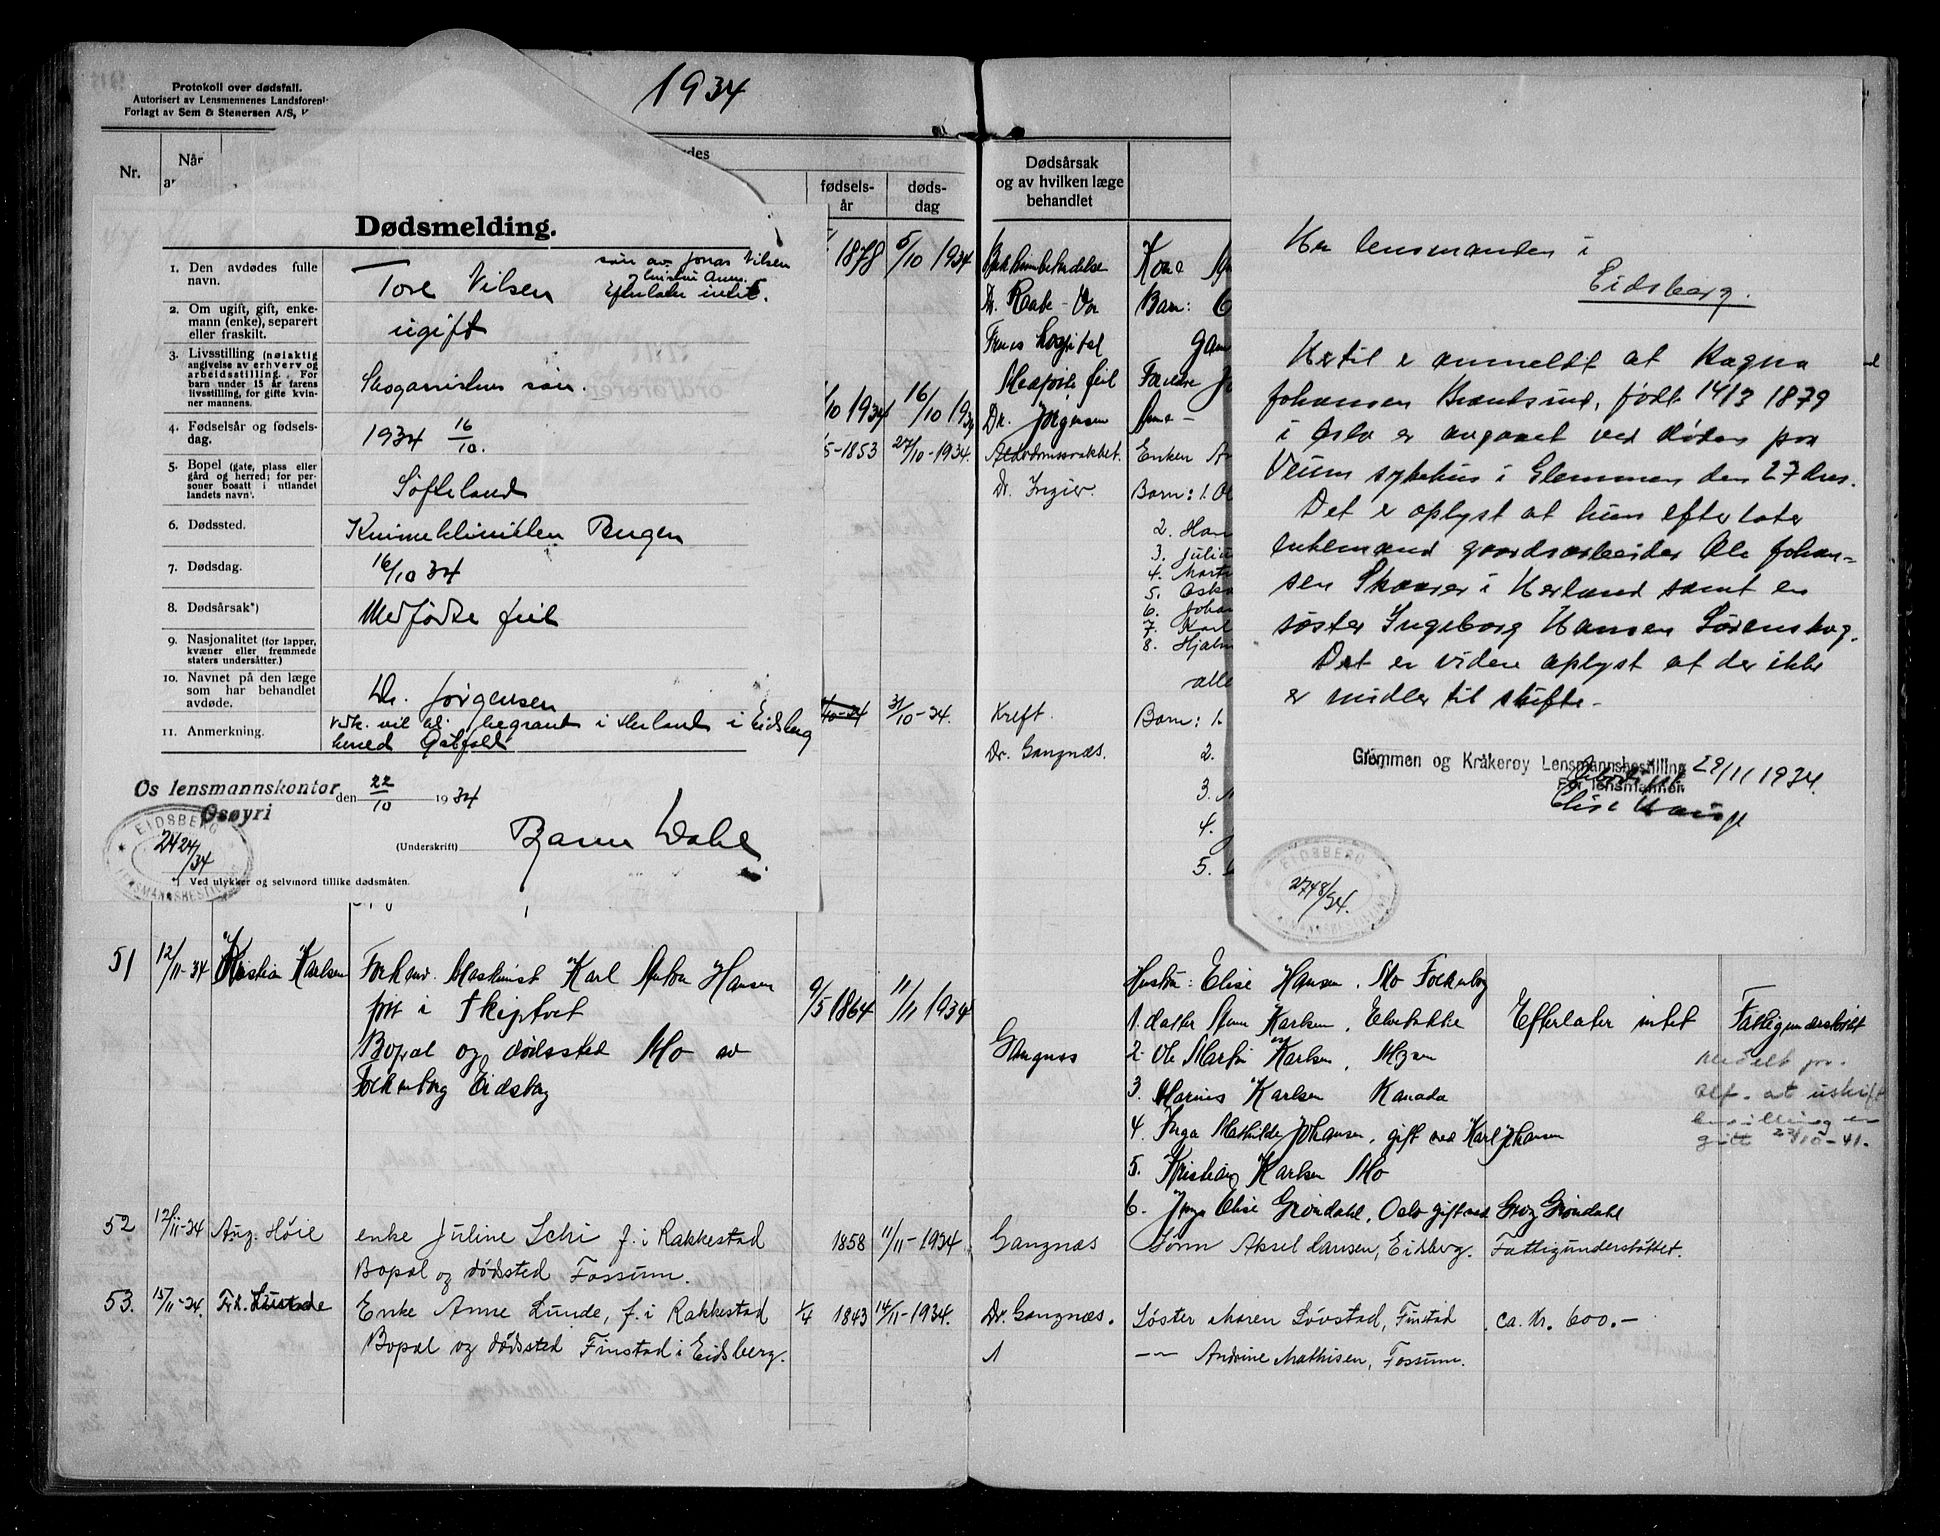 1934
Protokoll over dødsfall.
Autorisert av Lensmennenes Landsforen
Forlagt av Sem & Stenersen A/S,
Nr.
Når
fødsels-
år
døds-
dag
Dødsårsak
og av hvilken læge
behandlet
Dødsmelding.
1. Den avdødes fulle
navn.
Tore Nilsen
søn av Jonas Nilsen
Efterlater intet.
2. Om ugift, gift, enke-
mann (enke), separert
eller fraskilt.
ugift
3. Livsstilling (nøiaktig
angivelse av erhverv og
arbeidsstilling. For
barn under 15 år farens
livsstilling, for gifte kvin-
ner mannens.
søn.
4. Fødselsår og fødsels-
dag.
1934 16/10.
5. Bopel (gate, plass eller
gård og herred; for per-
soner bosatt i utlandet
landets navn).
Søfteland
6. Dødssted.
Kvinneklinikken Bergen
7. Dødsdag.
16/10 34
8. Dødsårsak*)
Medfødte feil
9. Nasjonalitet (for lapper,
kvæner eller fremmede
staters undersåtter.)
10. Navnet på den læge
som har behandlet
avdøde.
Dr. Jörgensen
11. Anmerkning.
vil bli begravet i Herland i Eidsberg
herred
Os lensmannskontor den 22/10 1934
Osøyri
(Underskrift) Bjarne Dahl
EIDSBERG
2424/34
LENSMANNSBESTILLING
*) Ved ulykker og selvmord tillike dødsmåten.
1878 5/10 1934
Dr. Raabe
hospital
Kone
Barn:
/10 1934 16/10 193
Medfødte feil
Dr. Jörgensen
Foreldre
-1853 27/10-1934.
Dr. Ingier.
Enken
Barn: 1.
2. Han
3. Juliu
4. Marti
5. Oska
6. Johan
7. Karl
8. Hjalm
alle
31/10-34.
Kreft.
Dr. Gangnæs.
Barn: 1.
2.
3.
4.
5.
Hr lensmanden i
Eidsberg.
Hertil er anmeldt at Ragna
Johansen født 14/3 1879
i Oslo er avgaaet ved døden paa
Veum sykehus i Glemmen den 27 dns.
Det er oplyst at hun efterlater
enkemand gaardsarbeider Ole Johan=
sen Skaarer i Herland samt en
søster Ingeborg Hansen Lørenskog.
Det er videre oplyst at der ikke
er midler til skifte.
Glemmen og Kråkerøy Lensmannsbestilling 29/11 1934.
For lensmannen
EIDSBERG
2748/34.
LENSMANNSBESTILLING
51 12/11-34 Kristian Karlsen
Forhenv. Maskinist Karl Anton Hansen
født i Skiptvet
Bopæl og dødssted Mo av
Folkenborg Eidsberg
9/5 1864 11/11 1934
Gangnæs
Hustru: Elise Hansen. Mo Folkenborg
1. datter Karlsen,
2. Ole Martin Karlsen, Mysen
3. Marius Karlsen Kanada
4. Inga Mathilde Johansen, gift med Karl Johansen
5. Kristian Karlsen Mo
6. Elise Grøndahl, Oslo gift med Grøndahl
Efterlater intet
Fattigunderstøttet
Meddelt
at uskift
bevilling er
gitt 22/10-41.
52 12/11-34 Aug. Høie
enke Juline f. i Rakkestad
Bopæl og dødsted Fossum.
1858 11/11-1934
Gangnæs
Sønn Aksel Hansen, Eidsberg. Fattigunderstøttet.
53. 15/11-34.
Enke Anne Lunde, f. i Rakkestad
Bopæl og dødsted Finstad i Eidsberg.
1/4 1843 14/11-1934.
Dr. Gangnæs.
Søster Maren Løvstad, Finstad
—"— Andrine Mathisen, Fossum.
ca. kr. 600.-